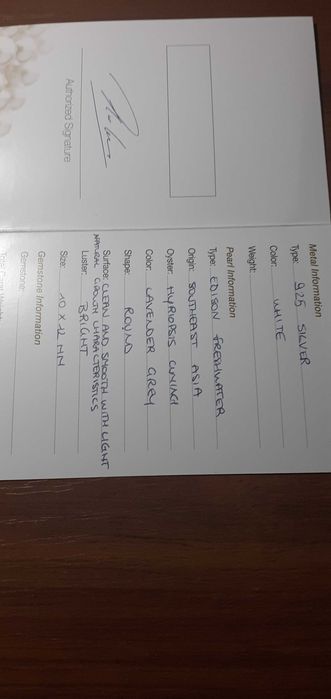 Metal Information
Type: 925 SILVER
Color: WHITE
Weight:
Pearl Information
Type: EDISON FRESHWATER
Origin: SOUTHEAST ASIA
Oyster: HYRIOPSIS CUMINGI
Color: LAVENDER GREY
Shape: ROUND
Surface: CLEAN AND SMOOTH WITH LIGHT
NATURAL GROWTH CHARACTERISTICS
Luster: BRIGHT
Size: 10 X 12 MM
Gemstone Information
Gemstone:
Authorized Signature